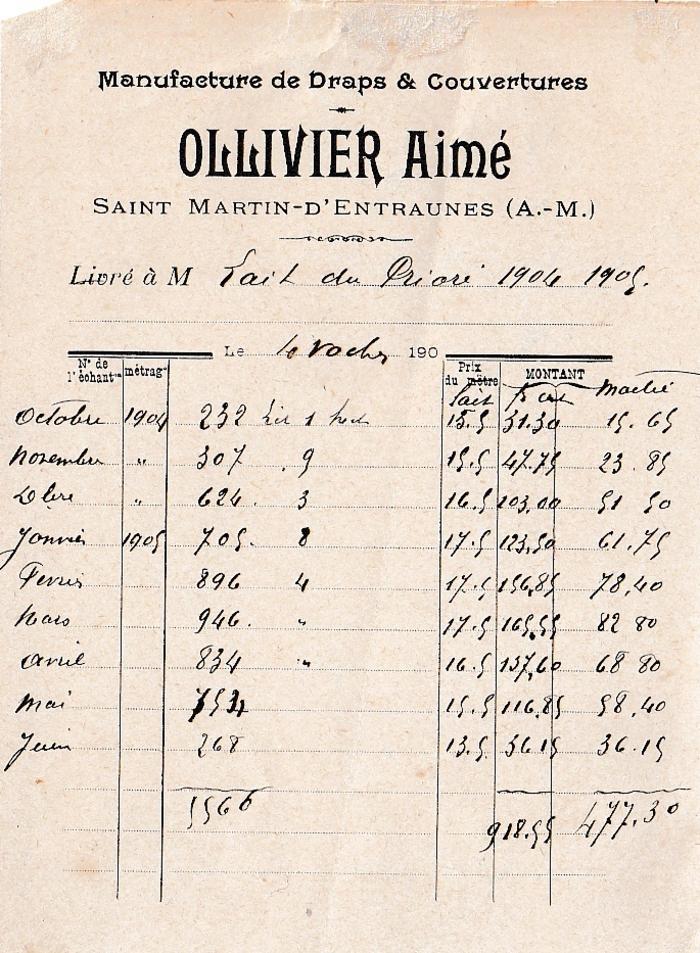 Manufacture de Draps & Couvertures
OLLIVIER Aimé
SAINT MARTIN-D'ENTRAUNES (A.-M.)
Livré à M Lait du Prioré 1904 1905.
Le 4 vaches 190
N° de l'échant métrag Prix du mètre MONTANT
Lait Moitié
Octobre 1904 232 1 15.5 31.30 15.65
Novembre " 307 . 9 15.5 47.75 23.85
Dbre " 624. 3 16.5 103,00 51 50
Janvier 1905 705. 8 17.5 123,50 61.75
Fevrier 896 4 17.5 156,85 78,40
Mars 946. " 17.5 165,55 82 80
Avril 834 " 16.5 137,60 68 80
Mai 754 15.5 116,85 58,40
Juin 268 13.5 36 15 36.15
5566 918.55 477.30